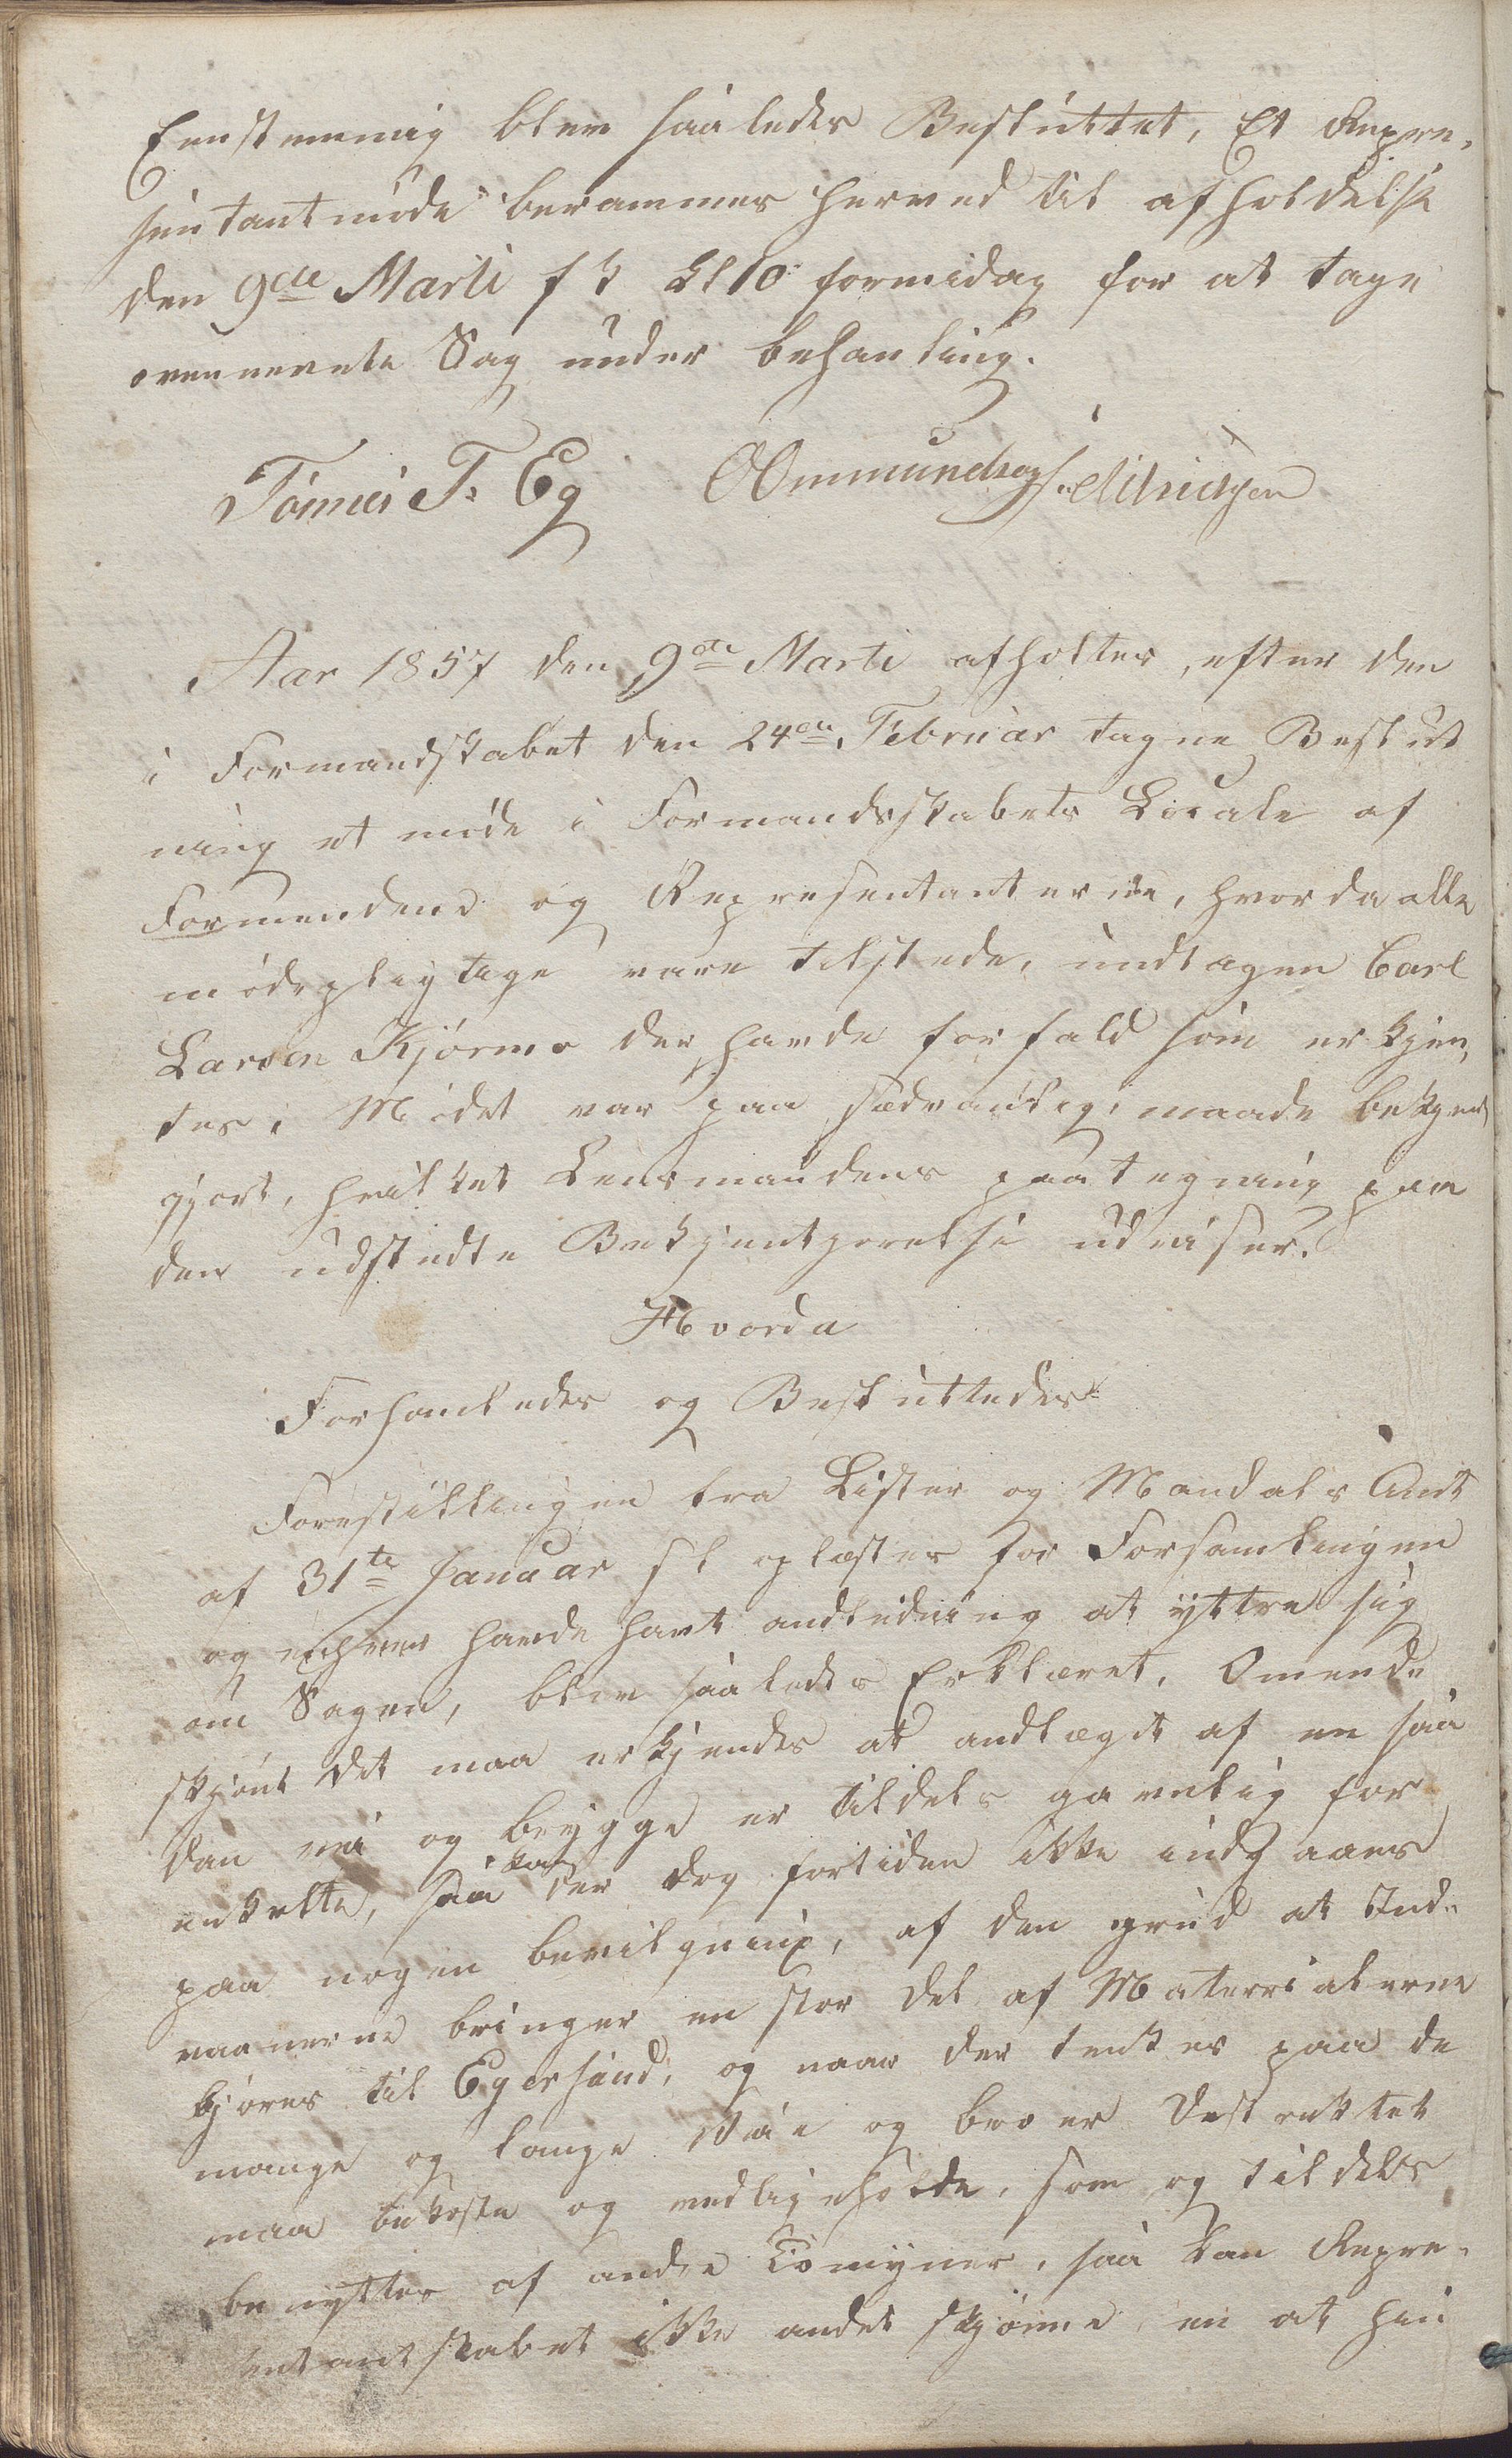 Eenstemmig blev saaledes Besluttet, Et Repre,
sentantmøde berammes herved til afholdelse
den 9de Marti f k Kl 10 formidag for at tage
ovennevnte Sag under behanling.
Tønnes T. Eg OOmmundsen
Aar 1857 den 9de Marti afholtes, efter den
i Formandskabet den 24de Februar tagne Beslut
ning et møde i Formandsskabets Locale af
Formendene og Representanterne, hvorda alle
mødepligtige vare tilstede, undtagen Carl
Larsen Kjørmo der havde forfald som erkjen,
tes, Mødet var paa sædvanlig maade bekjent
gjort, hvilket Lensmandens paategning paa
den udstedte Bekjentgjørelse udviser.
Hvorda
Forhanledes og Besluttedes
Forestillingen fra Lister og Mandals Amt
af 31te Januar sl oplæstes for Forsamlingen
og enhver havde havt andledning at yttre sig
om Sagen, blev saaledes Erklæret, Omende
skjønt det maa erkjendes at andlæget af en saa
dan vei og brygge er tildels gavnlig for
enkelte, saa kan der dog fortiden ikke indgaaes
paa nogen bevilgning, af den grund at Ind-
vaanerne bringer en stor del af Materrialerne
kjøres til Egersund, og naar der tenkes paa de
mange og lange Veie og broer Destrektet
maa bekoste og vedligeholde, som og tildels
benyttes af andre Comyner, saa kan Repre-
sentantskabet ikke andet skjønne en at hin